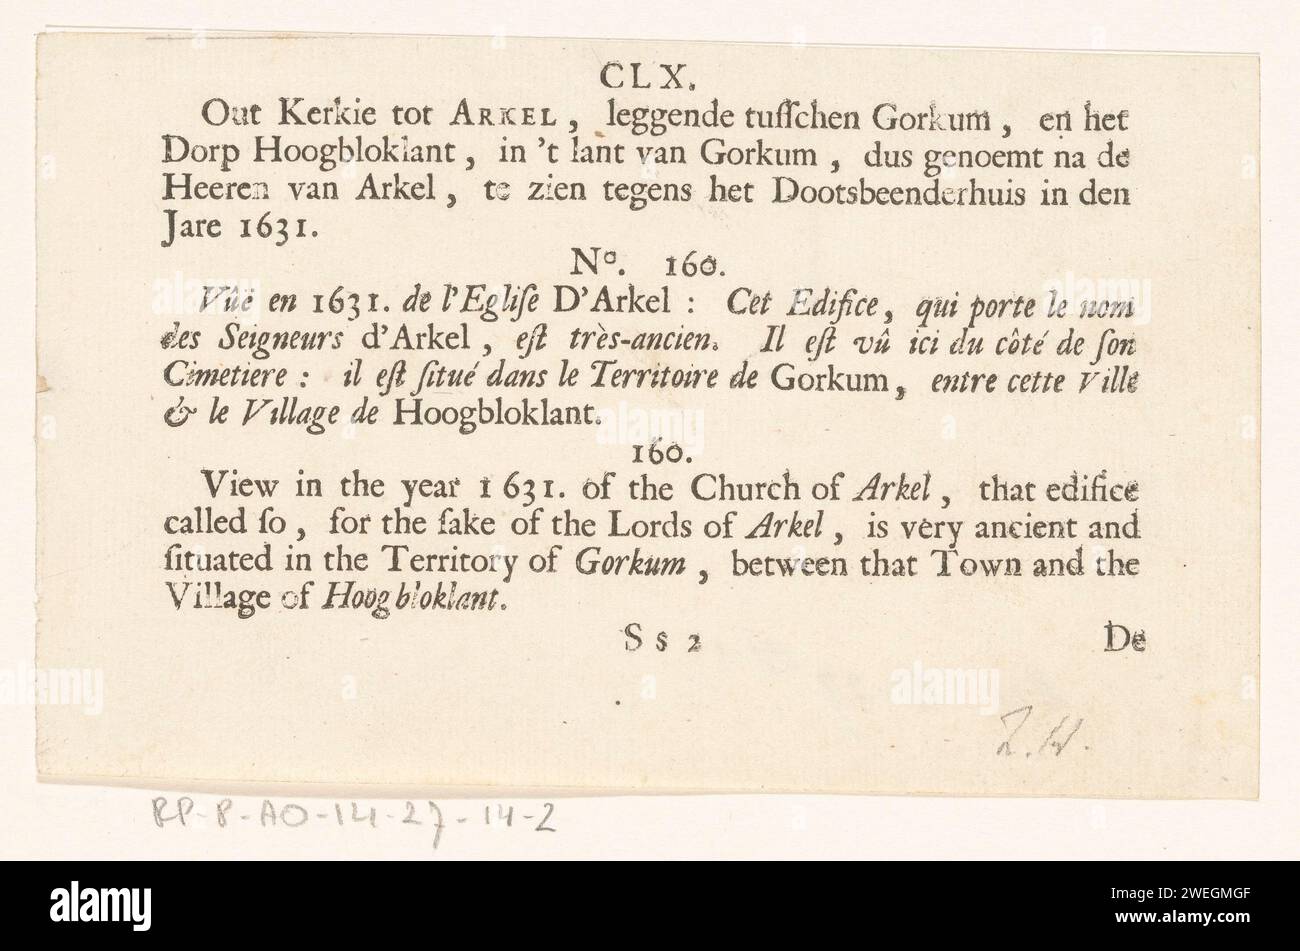 CLX.
Out Kerkie tot ARKEL, leggende tuſſchen Gorkum, en het
Dorp Hoogbloklant, in 't lant van Gorkum, dus genoemt na de
Heeren van Arkel, te zien tegens het Dootsbeenderhuis in den
Jare 1631.
Nº. 160.
Vûë en 1631. de l'Egliſe D'Arkel : Cet Edifice, qui porte le nom
des Seigneurs d'Arkel, eſt très-ancien. Il eſt vû ici du côté de ſon
Cimetiere : il eſt ſitué dans le Territoire de Gorkum, entre cette Ville
& le Village de Hoogbloklant.
160.
View in the year 1631. of the Church of Arkel, that edifice
called ſo, for the ſake of the Lords of Arkel, is very ancient and
ſituated in the Territory of Gorkum, between that Town and the
Village of Hoogbloklant.
S s 2 De
RP-P-AO-14-27-14-2
alamy
Image ID: 2WEGMGF
www.alamy.com